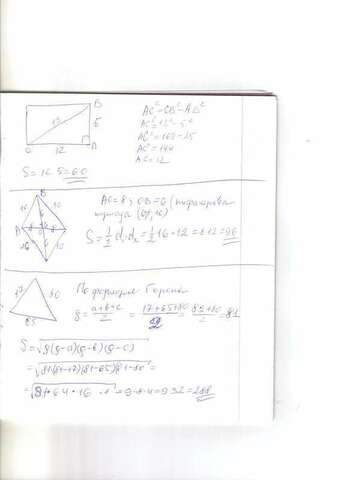 B
13
5
O 12 A
AC²=CB²-AB²
AC²=13²-5²
AC²=169-25
AC²=144
AC=12
S=12·5=60
B
10 10
6
8 O 8
10 10
6
AC=8, OB=6 (пифагорова
S=1/2 d₁d₂=1/2 16·12=8·12=96
17 80
65
По формуле Герона
p=(a+b+c)/2=(17+65+80)/2=(82+80)/2=81
S=√p(p-a)(p-b)(p-c)
=√81(81-17)(81-65)(81-80)=
=√81·64·16·1=9·8·4=9·32=288